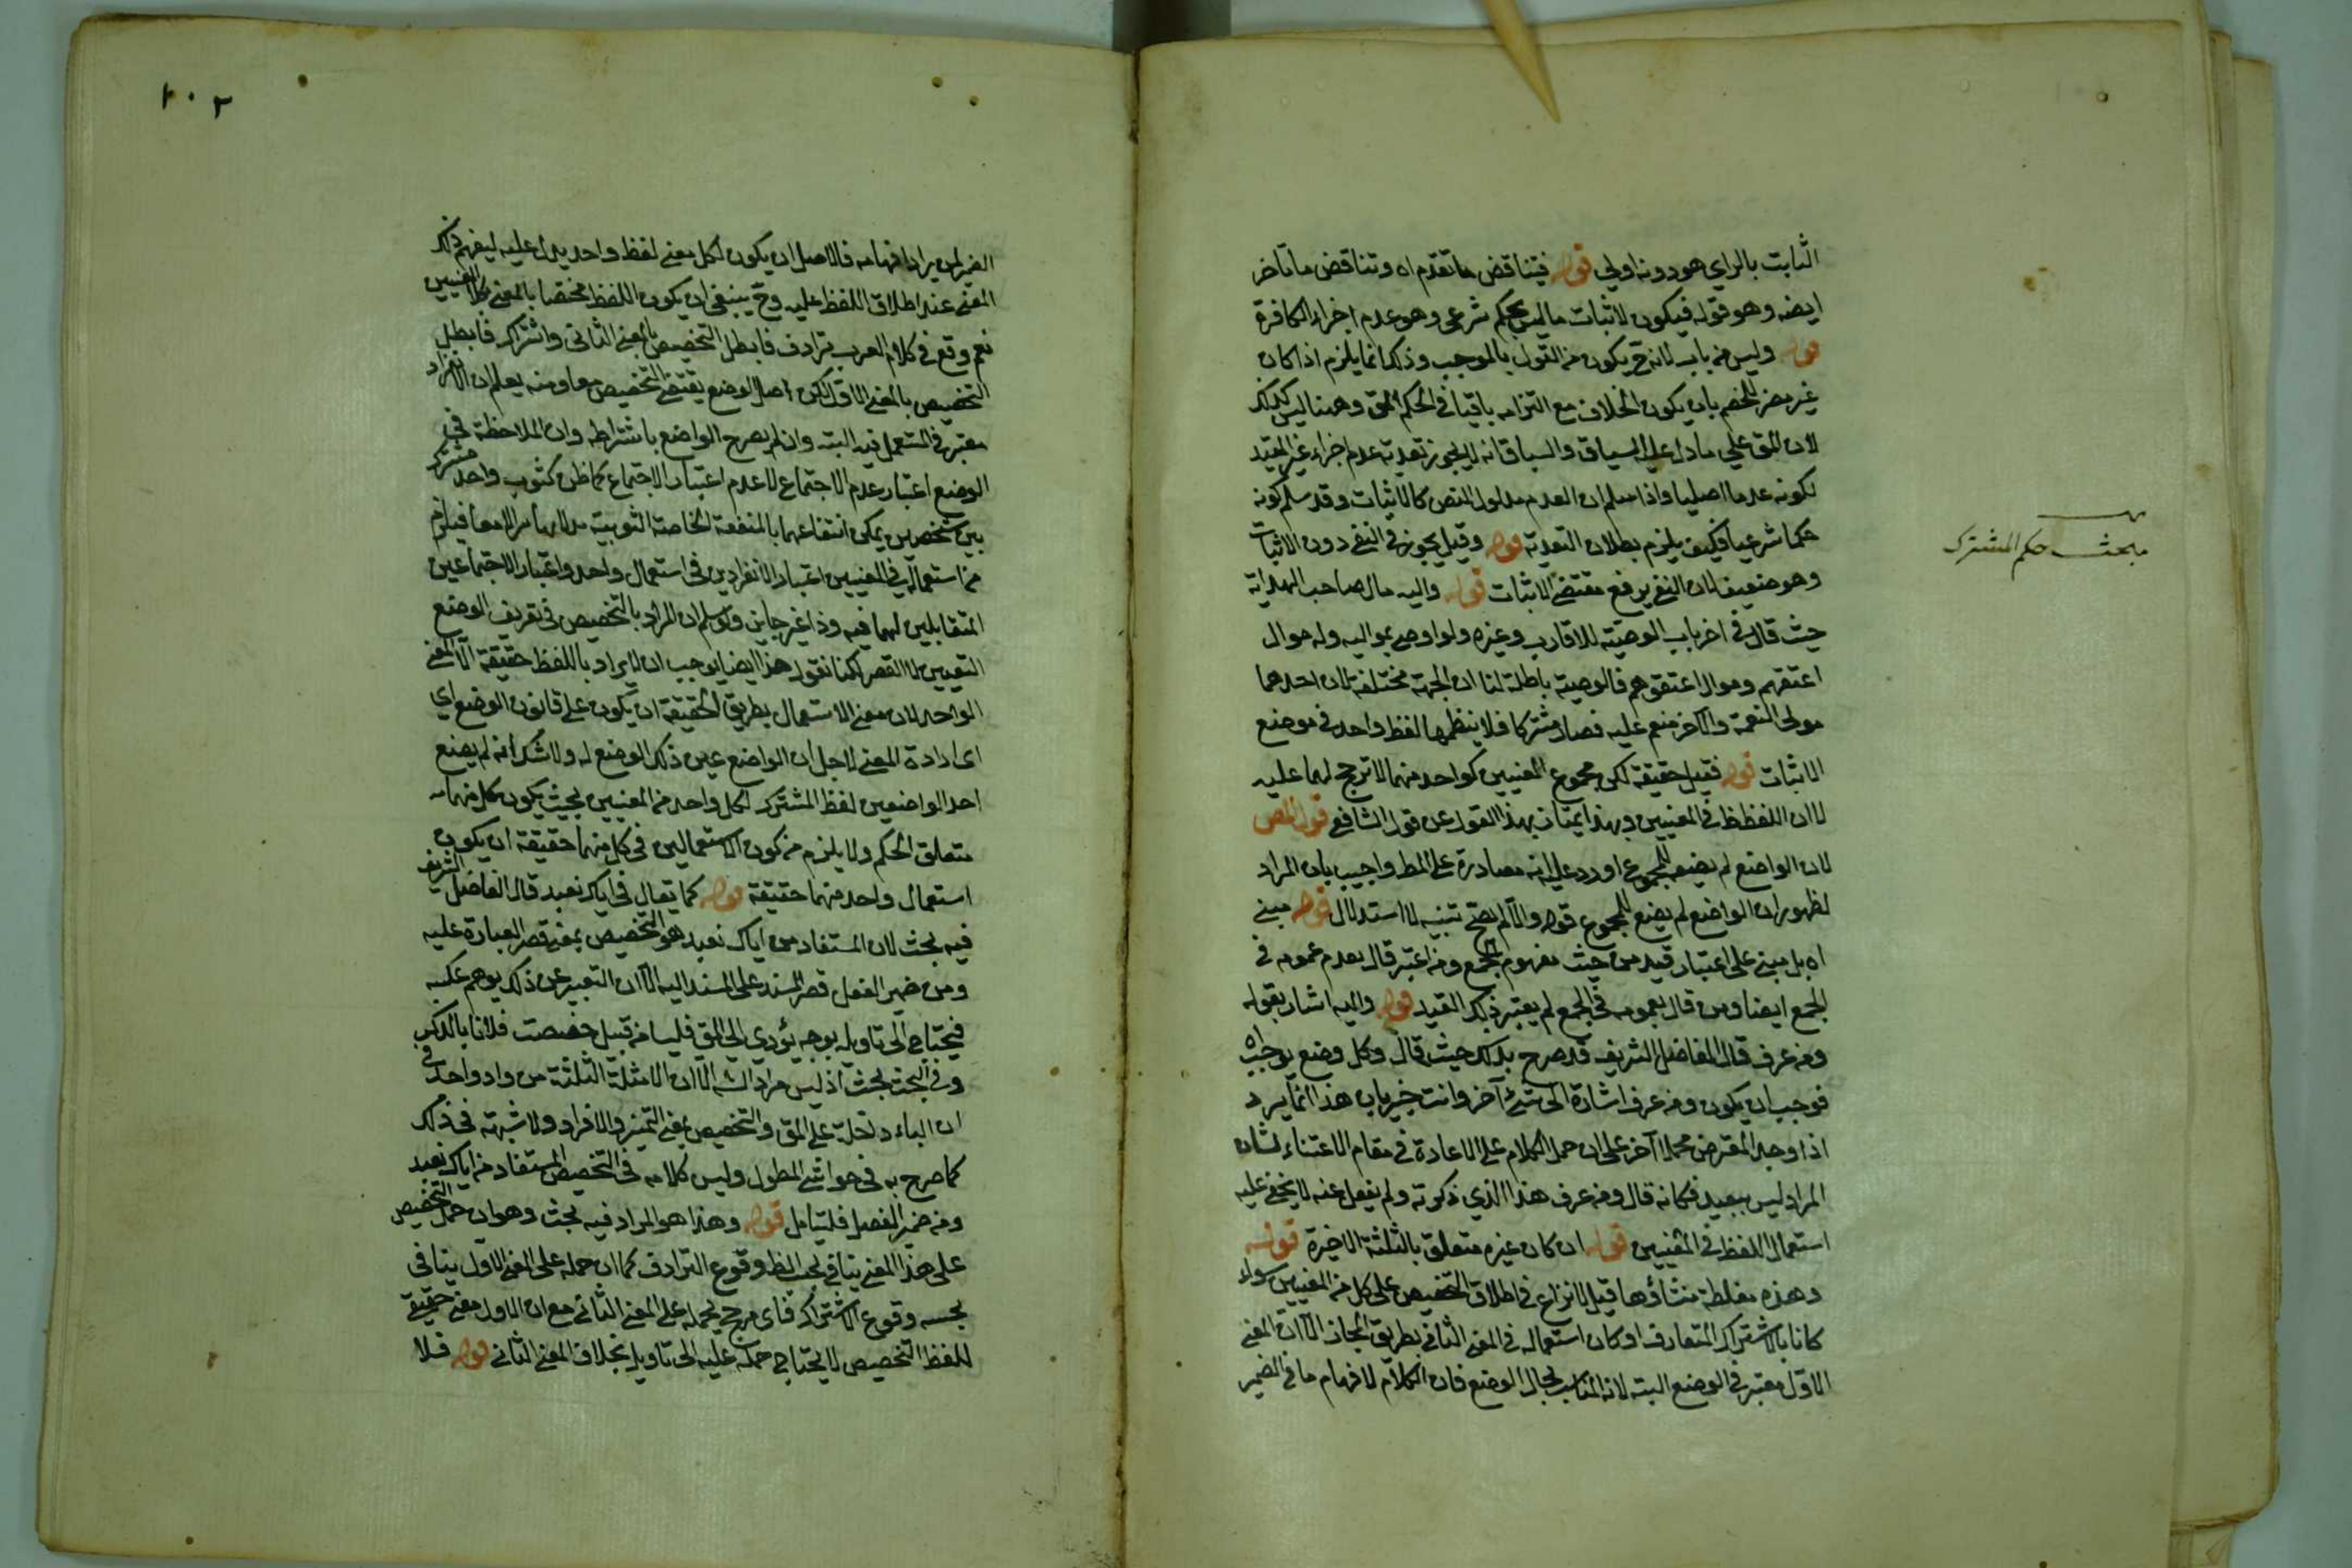 الثابت بالراي هو دونه اولى قوله فيتناقض ما تقدم اه وتناقض ما تأخر
ايضه وهو قوله فيكون لاثبات ما ليس بحكم شرعى وهو عدم اجزاء الكافرة
قوله وليس من باب لانه ح يكون من القول بالموجب وذلك انما يلزم اذا كان
غير مضر للخصم بان يكون الخلاف مع التزامه باقيا فى الحكم المق وههنا ليس كذلك
لان المق على ما دل عليه السياق والسباق انه لا يجوز تعدية عدم اجزاء غير المقيد
لكونه عدما اصليا واذا سلم ان العدم مدلول النص كالاثبات وقد سلم كونه
حكما شرعيا فكيف يلزم بطلان التعدية قوله وقيل يجوز فى النفى دون الاثبات
وهو ضعيف لان النفى يرفع مقتضى الاثبات قوله واليه مال صاحب الهداية
مبحث حكم المشترك
حيث قال فى اخر باب الوصية للاقارب وغيره ولو اوصى بمواليه وله موال
اعتقهم وموال اعتقوهم فالوصية باطلة لنا ان الجهة مختلفة لان احدهما
مولى النعمة والآخر منعم عليه فصار مشتركا فلا ينتظمهما لفظ واحد فى موضع
الاثبات قوله فقيل حقيقة لكن مجموع المعنيين كواحد منهما لا ترجح لهما عليه
لا ان اللفظ ظ فى المعنيين وبهذا يمتاز بهذا القول عن قول الشافعى قول المص
لان الواضع لم يضعه للمجموع اورد عليه انه مصادرة على المط واجيب بان المراد
لظهور ان الواضع لم يضع للمجموع قوله والا لم يصح تنبيه لا استدلال قوله مبنى
اه بل مبنى على اعتبار قيد من حيث مفهوم الجمع ومن اعتبر قال بعدم عمومه فى
الجمع ايضا ومن قال بعمومه فى الجمع لم يعتبر ذلك القيد قوله واليه اشار بقوله
ومن عرف قال الفاضل الشريف قد صرح بذلك حيث قال وكل وضع يوجب اه
فوجب ان يكون ومن عرف اشارة الى شئ آخر وانت خبير بان هذا انما يرد
اذا وجد المعترض محملا آخر على ان حمل الكلام على الاعادة فى مقام الاعتناء لشان
المراد ليس ببعيد فكانه قال ومن عرف هذا الذي ذكرته ولم يغفل عنه لا يخفى عليه
استعمال اللفظ فى المعنيين قوله ان كان غيره متعلق بالثلثة الاخيرة قوله
وهذه مغلطة منشاؤها قيل لا نزاع فى اطلاق التخصيص على كل من المعنيين سواء
كانا بالاشتراك المتعارف او كان استعماله فى المعنى الثانى بطريق المجاز الا ان المعنى
الاول معتبر فى الوضع البتة لانه المناسب لحال الوضع فان الكلام لافهام ما فى الضمير
٢٠٢
الغير لمن يراد افهامه فالاصل ان يكون لكل معنى لفظ واحد يدل عليه ليفهم ذلك
المعنى عند اطلاق اللفظ عليه وح ينبغى ان يكون اللفظ مختصا بالمعنى بكلا المعنيين
نعم وقع فى كلام العرب ترادف فابطل التخصيص بالمعنى الثانى واشتراك فابطل
التخصيص بالمعنى الاول لكن اصل الوضع يقتضى التخصيص معا ومنه يعلم ان الانفراد
معتبر فى المستعمل فيه البتة وان لم يصرح الواضع باشتراطه وان الملاحظة فى
الوضع اعتبار عدم الاجتماع لا عدم اعتبار الاجتماع كما ظن كثوب واحد مشترك
بين شخصين يمكن انتفاعهما بالمنفعة الخاصة الثوبية معا فيلزم
من استعماله فى المعنيين اعتبار الانفرادين فى استعمال واحد واعتبار الاجتماعين
المتقابلين لهما فيه وذا غير جايز ولو سلم ان المراد بالتخصيص فى تعريف الوضع
التعيين لا القصر لكنا نقول هذا ايضا يوجب ان لا يراد باللفظ حقيقة الا المعنى
الواحد لان معنى الاستعمال بطريق الحقيقة ان يكون على قانون الوضع اي
اى ارادة المعنى لاجل ان الواضع عين ذلك الوضع له ولا شك انه لم يضع
احد الواضعين لفظ المشترك لكل واحد من المعنيين بحيث يكون كل منهما
متعلق الحكم ولا يلزم من كون الاستعمالين فى كل منهما حقيقة ان يكون
استعمال واحد منهما حقيقة قوله كما يقال فى اياك نعبد قال الفاضل الشريف
فيه بحث لان المستفاد من اياك نعبد هو التخصيص بمعنى قصر العبارة عليه
ومن ضمير الفصل قصر المسند على المسند اليه الا ان التعبير عن ذلك يوهم عكسه
فيحتاج الى تاويله بوجه يؤدي الى المق فليسا من قبيل خصصت فلانا بالذكر
وفى البحث بحث اذ ليس مراد الش الا ان الامثلة الثلثة من واد واحد فى
ان الباء داخلة على المق والتخصيص بمعنى التميز والافراد ولا شبهة فى ذلك
كما صرح به فى حواشى المطول وليس كلامه فى التخصيص المستفاد من اياك نعبد
ومن ضمير الفصل فليتامل قوله وهذا هو المراد فيه بحث وهو ان حمل التخصيص
على هذا المعنى ينافى بحسب الظ وقوع الترادف كما ان حمله على المعنى الاول ينافى
بحسبه وقوع الاشتراك فاى مرجح يحمله على المعنى الثانى مع ان الاول معنى حقيقى
للفظ التخصيص لا يحتاج حمله عليه الى تاويل بخلاف المعنى الثانى قوله فلا